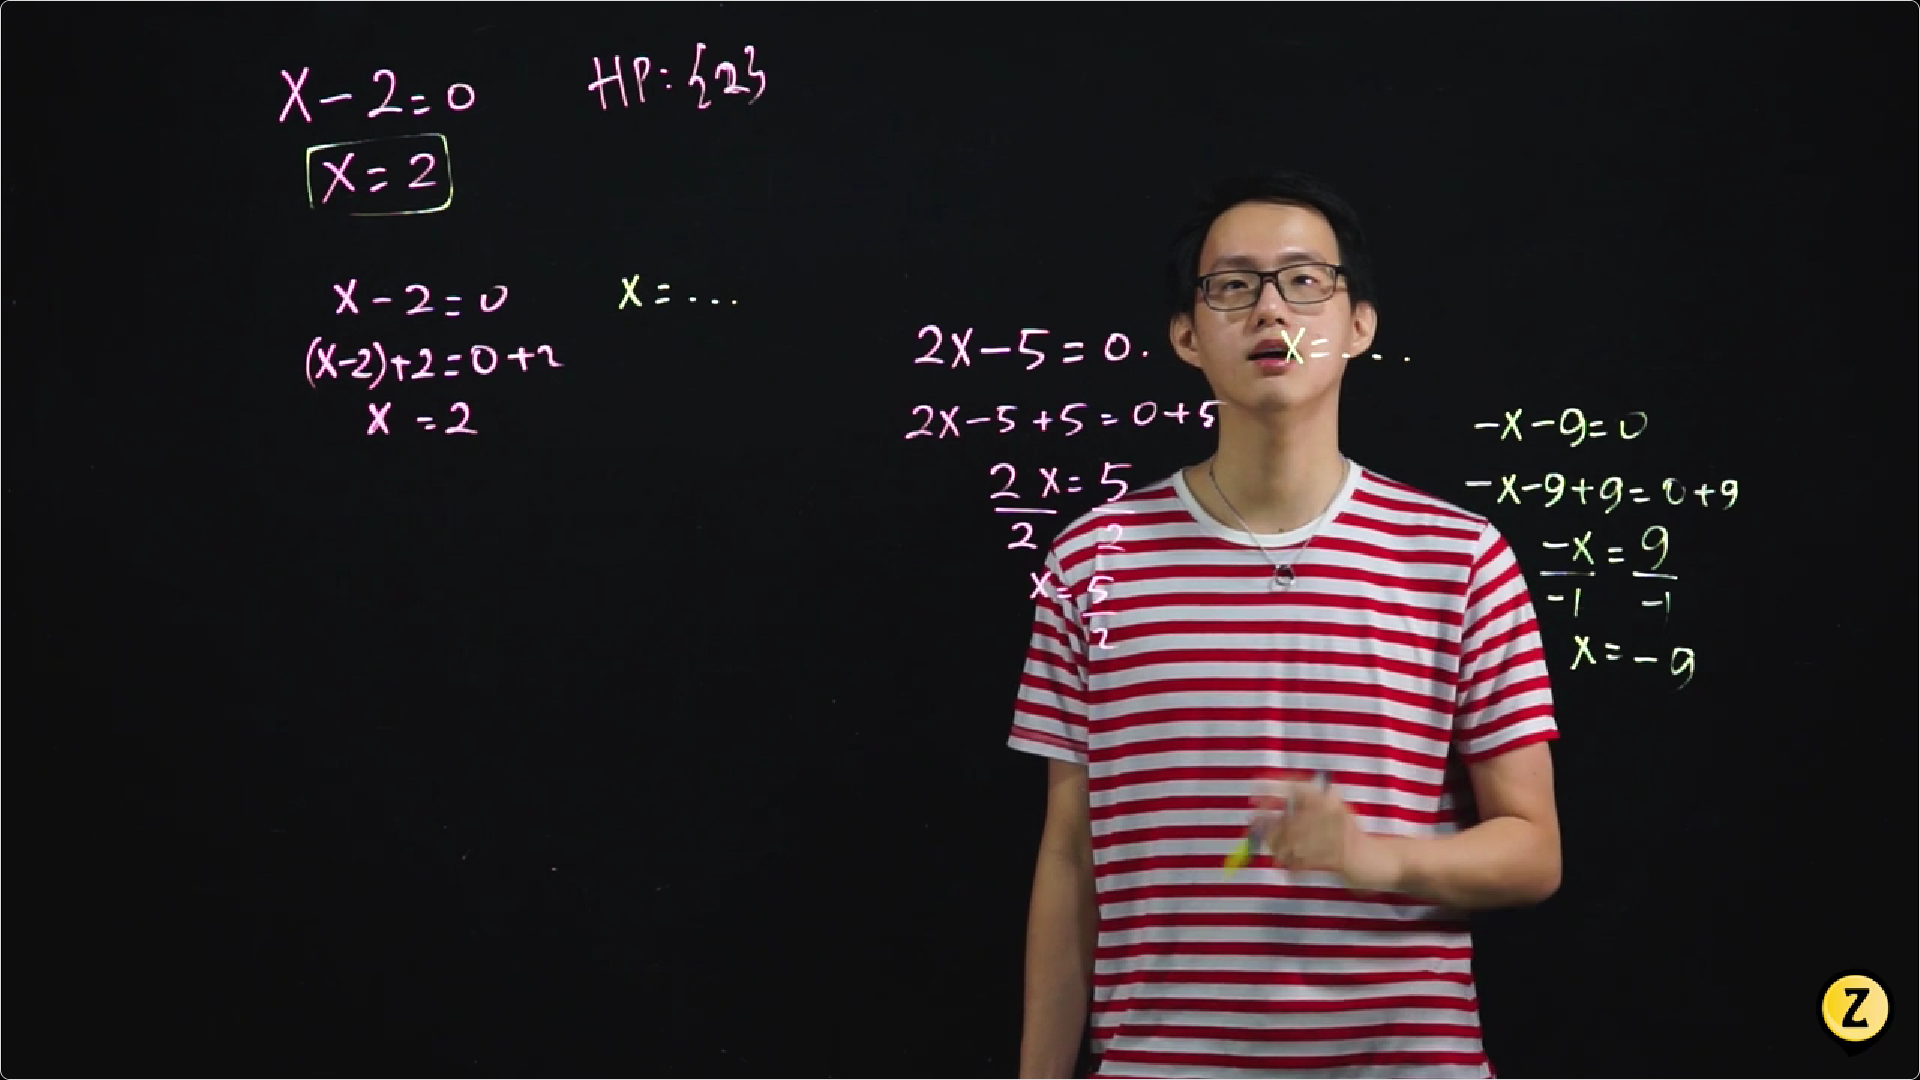 x-2=0
HP: {2}
x=2
x-2=0
x=...
(x-2)+2=0+2
x=2
2x-5=0.
x=...
2x-5+5=0+5
2x=5
2 2
x=5
2
-x-9=0
-x-9+9=0+9
-x=9
-1 -1
x=-9
Z